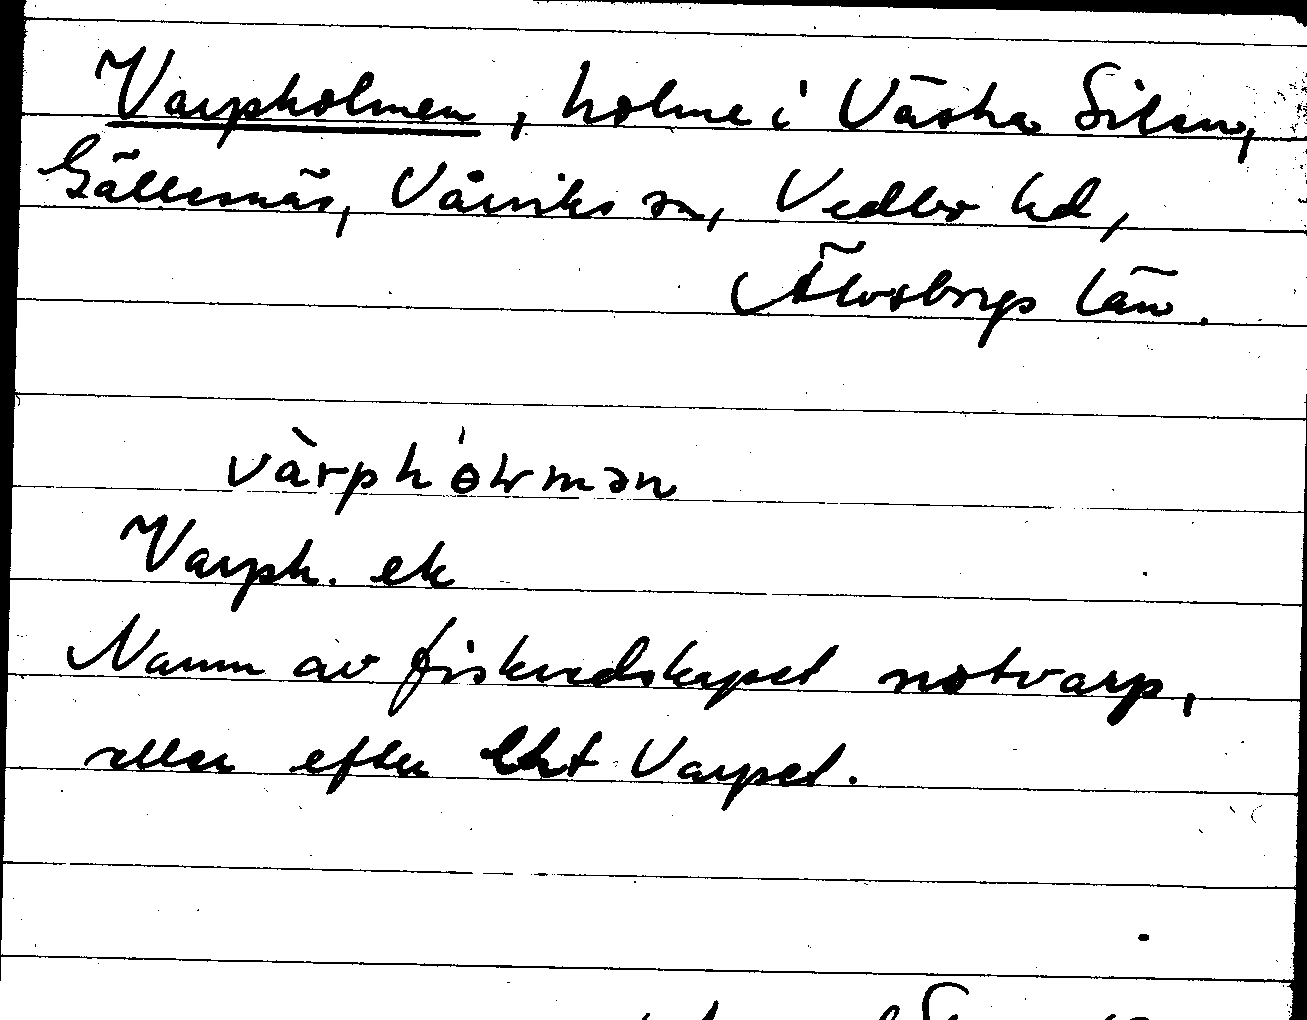 Varpholmen, holme i Västra Silen,
Gällesnäs, Vårviks sn, Vedbo hd,
Älvsborgs län.
värphòɫmən
Varph. ek
Namn av fiskredskapet notvarp,
eller efter Varpet.